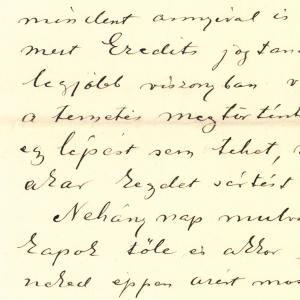 mindent annyival is
mert Eredits jogtaná
legjobb viszonyban v
a temetés megtörtént
egy lépést sem tehet,
akar kezdet sértést
Néhány nap mulva
kapok tőle és akkor
neked éppen azért mos